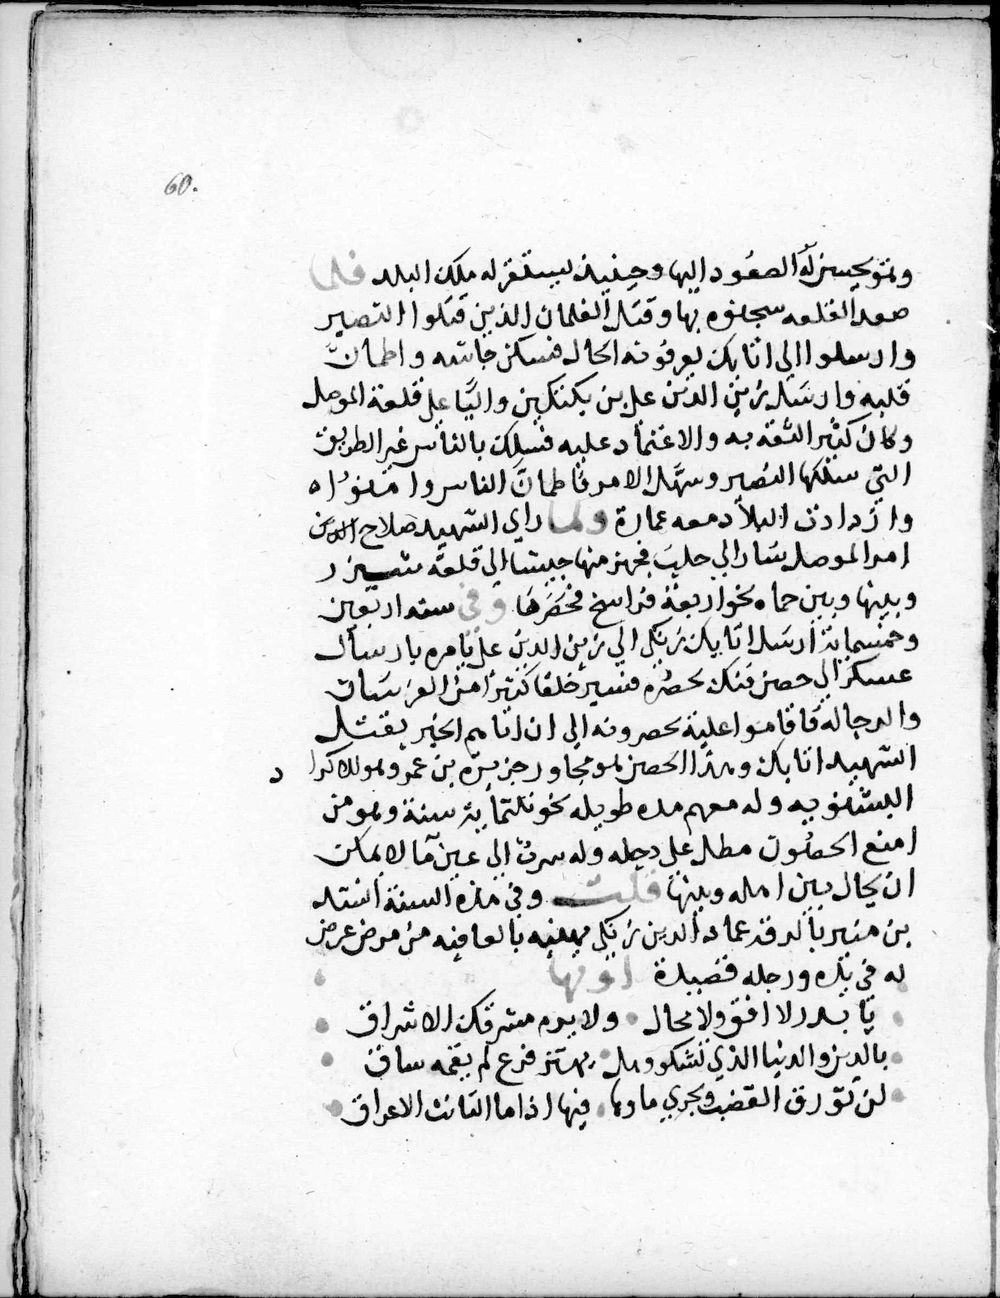 60.
وهو يحسن له الصعود اليها وحينيذ يستقر له ملك البلد فلما
صعد القلعه سجنوه بها وقتل الغلمان الذين قتلوا النصير
وارسلوا الي اتابك يعرفونه الحال فسكن جاشه واطمان
قلبه وارسل زين الدين علي بن بكتكين واليا علي قلعة الموصل
وكان كثير الثقه به والاعتماد عليه فسلك بالناس غير الطريق
التي سلكها النصير وسهل الامر فاطمان الناس وامنوا
وازدادت البلاد معه عمارة ولما راي الشهيد صلاح
امر الموصل سار الي حلب فجهز منها جيشا الي قلعة شيزر
وبينها وبين حماه نحو اربعة فراسخ فحصرها وفي سنه اربعين
وخمسماية ارسل اتابك زنكي الي زين الدين علي يامره بارسال
عسكر الي حصن فنك يحصره فسير خلقا كثيرا من الفرسان
والرجالة فاقاموا عليه يحصرونه الي ان اتاهم الخبر بقتل
الشهيد اتابك وهذا الحصن هو مجاور جزيره بن عمر وهو للاكراد
البشنويه وله معهم مده طويله نحو ثلثماية سنة وهو من
امنع الحصون مطل علي دجله وله سرب الي عين ما لا يمكن
ان يحال بين اهله وبينها قلت وفي هذه السنة انشد
بن منير بالرقه عماد الدين زنكي يهنيه بالعافيه من مرض عرض
له في يده ورجله قصيدة اولها
يا بدر لا افق ولا محال ولا يرم مشرقك الاشراق
بالدين والدنيا الذي تشكو وهل يهتز فرع لم يقمه ساق
لن تورق القضب ويجري ماوها فيها اذا ما التاثت الاعراق